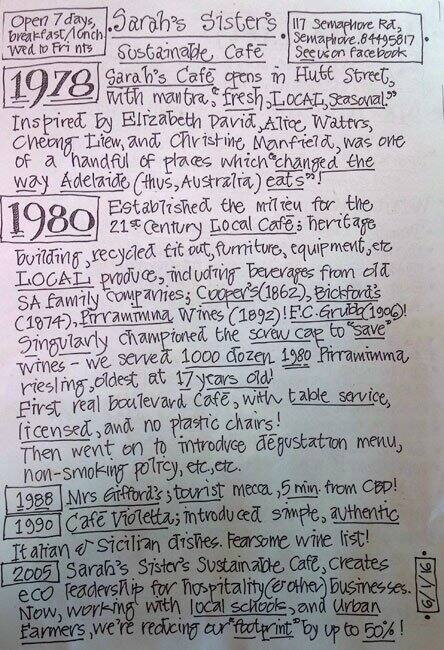 Open 7 days,
breakfast/lunch
Wed to Fri nts
Sarah's Sister's
Sustainable Café
117 Semaphore Rd,
Semaphore. 84495817
See us on facebook
1978 Sarah's Café opens in Hutt Street,
with mantra, "fresh, LOCAL, seasonal."
Inspired by Elizabeth David, Alice Waters,
Cheong Liew, and Christine Manfield, was one
of a handful of places which "changed the
way Adelaide (thus, Australia) eats"!
1980 Established the milieu for the
21st century Local Café; heritage
building, recycled fit out, furniture, equipment, etc
LOCAL produce, including beverages from old
SA family companies; Cooper's (1862), Bickford's
(1874), Pirramimma Wines (1892)! F.C. Grubb (1906)!
Singularly championed the screw cap to "save"
wines - we served 1000 dozen 1980 Pirramimma
riesling, oldest at 17 years old!
First real boulevard Café, with table service,
licensed, and no plastic chairs!
Then went on to introduce dégustation menu,
non-smoking policy, etc, etc.
1988 Mrs Gifford's; tourist mecca, 5 min. from CBD!
1990 Café Violetta; introduced simple, authentic
Italian & Sicilian dishes. Fearsome wine list!
2005 Sarah's Sister's Sustainable Café, creates
eco leadership for hospitality (& other) businesses.
Now, working with local schools, and Urban
Farmers, we're reducing our "footprint" by up to 50%!
6/1/16